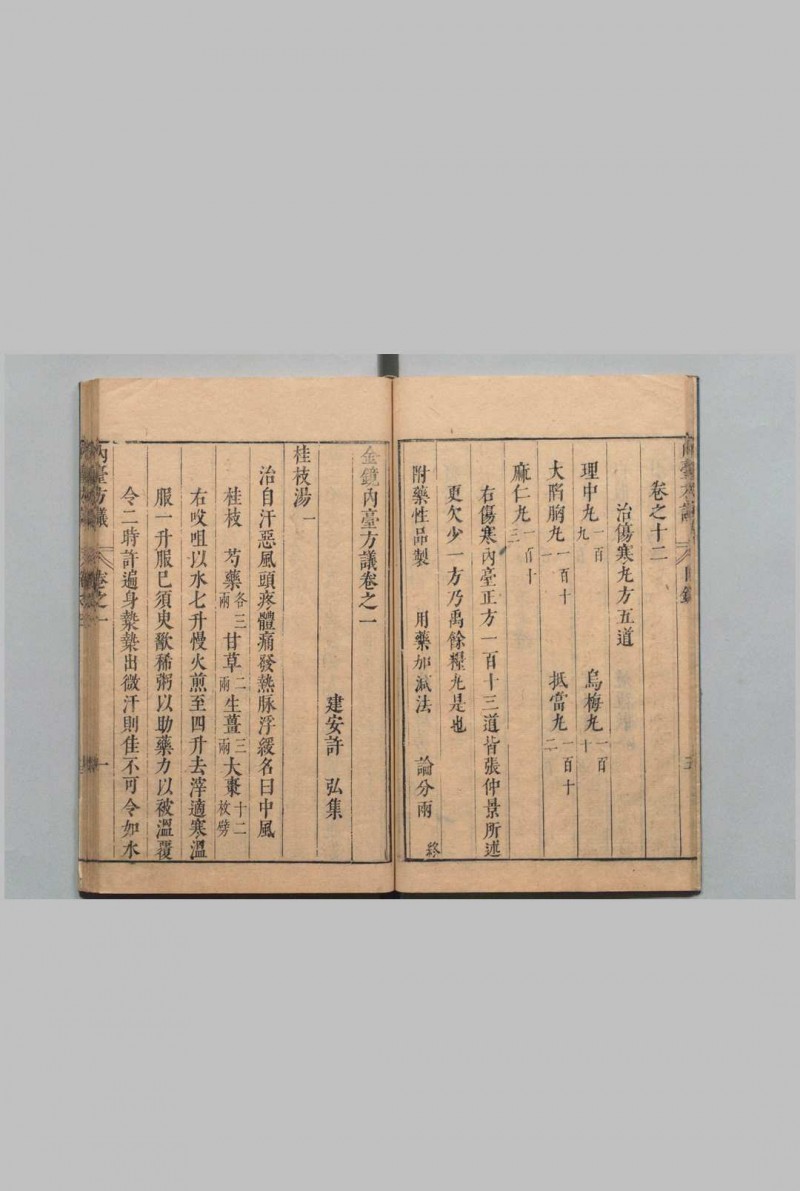 卷之十二
治傷寒丸方五道
理中丸一百九 烏梅丸一百十
大陷胸丸一百十一 抵當丸一百十二
麻仁丸一百十三
右傷寒內臺正方一百十三道皆張仲景所述
更欠少一方乃禹餘糧丸是也
附藥性品製 用藥加減法 論分兩 終
金鏡內臺方議卷之一
建安許 弘集
桂枝湯一
治自汗惡風頭疼體痛發熱脉浮緩名曰中風
桂枝 芍藥各三兩 甘草二兩 生薑三兩 大棗十二枚劈
右㕮咀以水七升慢火煎至四升去滓適寒溫
服一升服已須臾歠稀粥以助藥力以被溫覆
令二時許遍身漐漐出微汗則佳不可令如水
內臺方議 卷之一 一